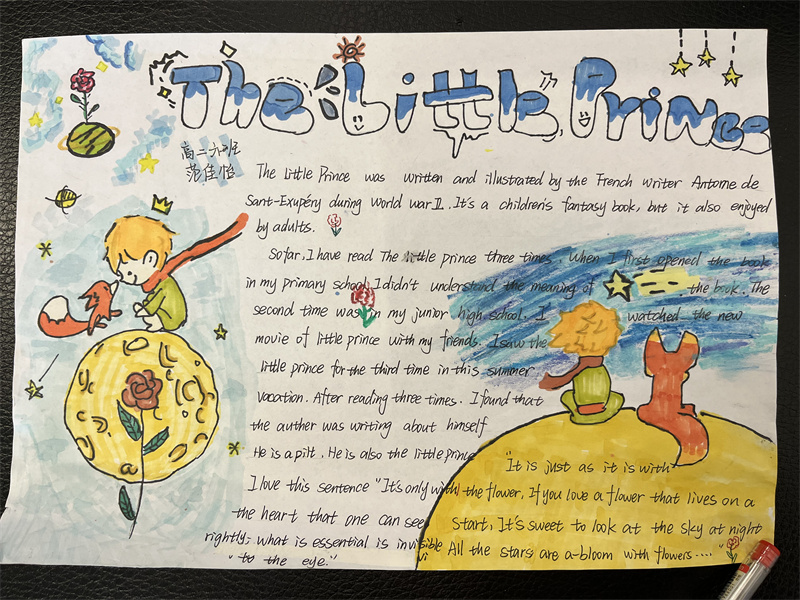 The Little Prince
高二六班
范佳怡
The little Prince was written and illustrated by the French writer Antoine de
Sant-Exupéry during World war II. It's a children's fantasy book, but it also enjoyed
by adults.
So far, I have read The little prince three times. When I first opened the book
in my primary school, I didn't understand the meaning of the book. The
second time was in my junior high school. I watched the new
movie of little prince with my friends. I saw the
little prince for the third time in this summer
vacation. After reading three times. I found that
the auther was writing about himself
He is a pilt. He is also the little prince
I love this sentence "It's only with
the heart that one can see
rightly; what is essential is invisible
to the eye."
"It is just as it is with
the flower, If you love a flower that lives on a
Start, It's sweet to look at the sky at night
All the stars are a-bloom with flowers...."